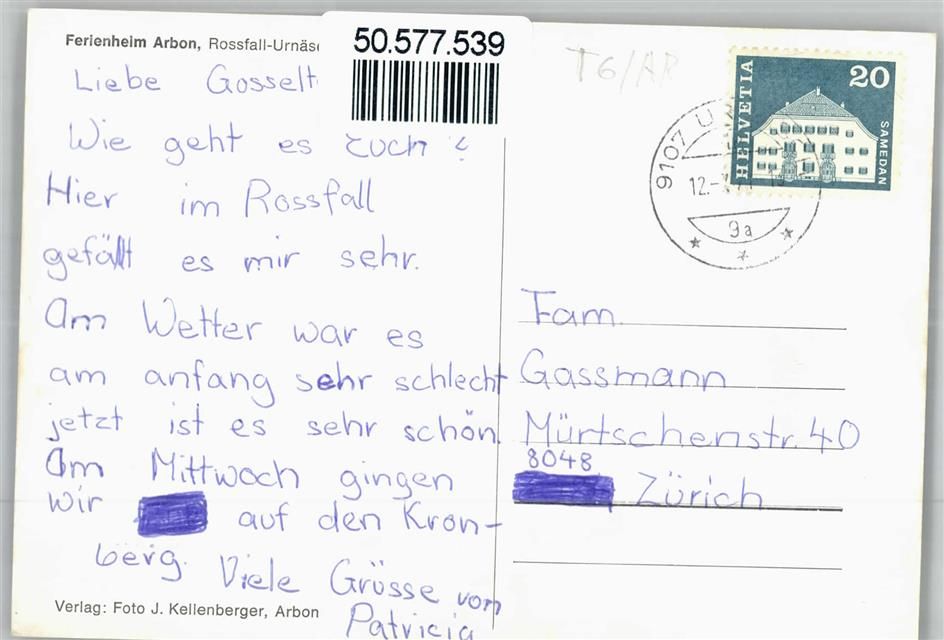 Ferienheim Arbon, Rossfall-Urnäs
50.577.539
T6/AR
HELVETIA
20
SAMEDAN
9107 U
12.-
9a
Liebe Gosselt
Wie geht es euch?
Hier im Rossfall
gefällt es mir sehr.
Am Wetter war es
am anfang sehr schlecht
jetzt ist es sehr schön.
Am Mittwoch gingen
wir auf den Kron-
berg. Viele Grüsse von
Patricia
Fam.
Gassmann
Mürtschenstr. 40
8048
Zürich
Verlag: Foto J. Kellenberger, Arbon